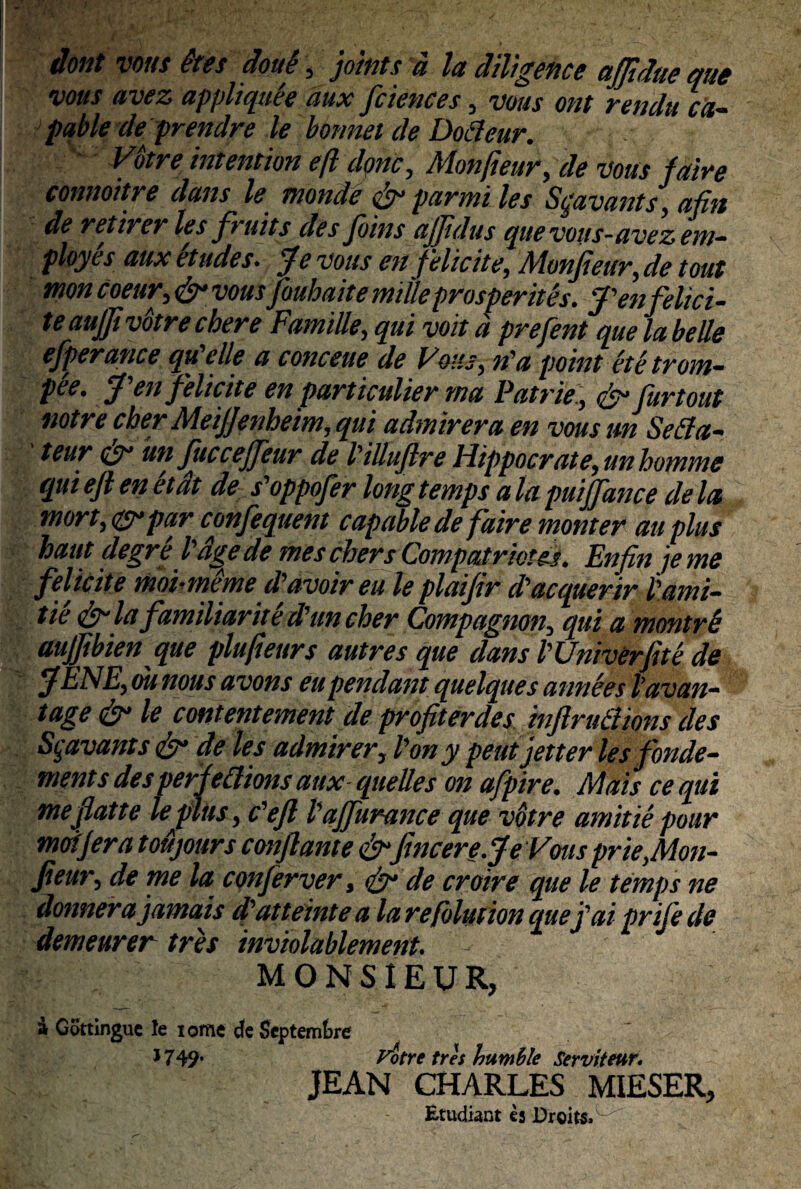 dont vous êtes doué, joints à la diligence assidue que
vous avez appliquée aux sciences, vous ont rendu ca-
pable de prendre le bonnet de Docteur.
Vôtre intention est donc, Monsieur, de vous faire
connoitre dans le monde & parmi les Sçavants, afin
de retirer les fruits des soins assidus que vous-avez em-
ployés aux études. Je vous en felicite, Monsieur, de tout
mon coeur, & vous souhaite mille prosperités. J'en felici-
te aussi vôtre chere Famille, qui voit à present que la belle
esperance qu'elle a conceue de Vous, n'a point été trom-
pée. J'en felicite en particulier ma Patrie, & surtout
notre cher Meissenheim, qui admirera en vous un Secta-
teur & un successeur de l'illustre Hippocrate, un homme
qui est en étât de s'opposer long temps a la puissance de la
mort, & par consequent capable de faire monter au plus
haut degré l'âge de mes chers Compatriotes. Enfin je me
felicite moi-même d'avoir eu le plaisir d'acquerir l'ami-
tié & la familiarité d'un cher Compagnon, qui a montré
aussibien que plusieurs autres que dans l'Université de
JENE, où nous avons eu pendant quelques années l'avan-
tage & le contentement de profiter des instructions des
Sçavants & de les admirer, l'on y peut jetter les fonde-
ments des perfections aux-quelles on aspire. Mais ce qui
me flatte le plus, c'est l'assurance que vôtre amitié pour
moi sera toûjours constante & sincere. Je Vous prie, Mon-
sieur, de me la conserver, & de croire que le temps ne
donnera jamais d'atteinte a la resolution que j'ai prise de
demeurer très inviolablement.
MONSIEUR,
à Göttingue le 10me de Septembre
1749.
Vôtre très humble Serviteur.
JEAN CHARLES MIESER,
Etudiant ès Droits.